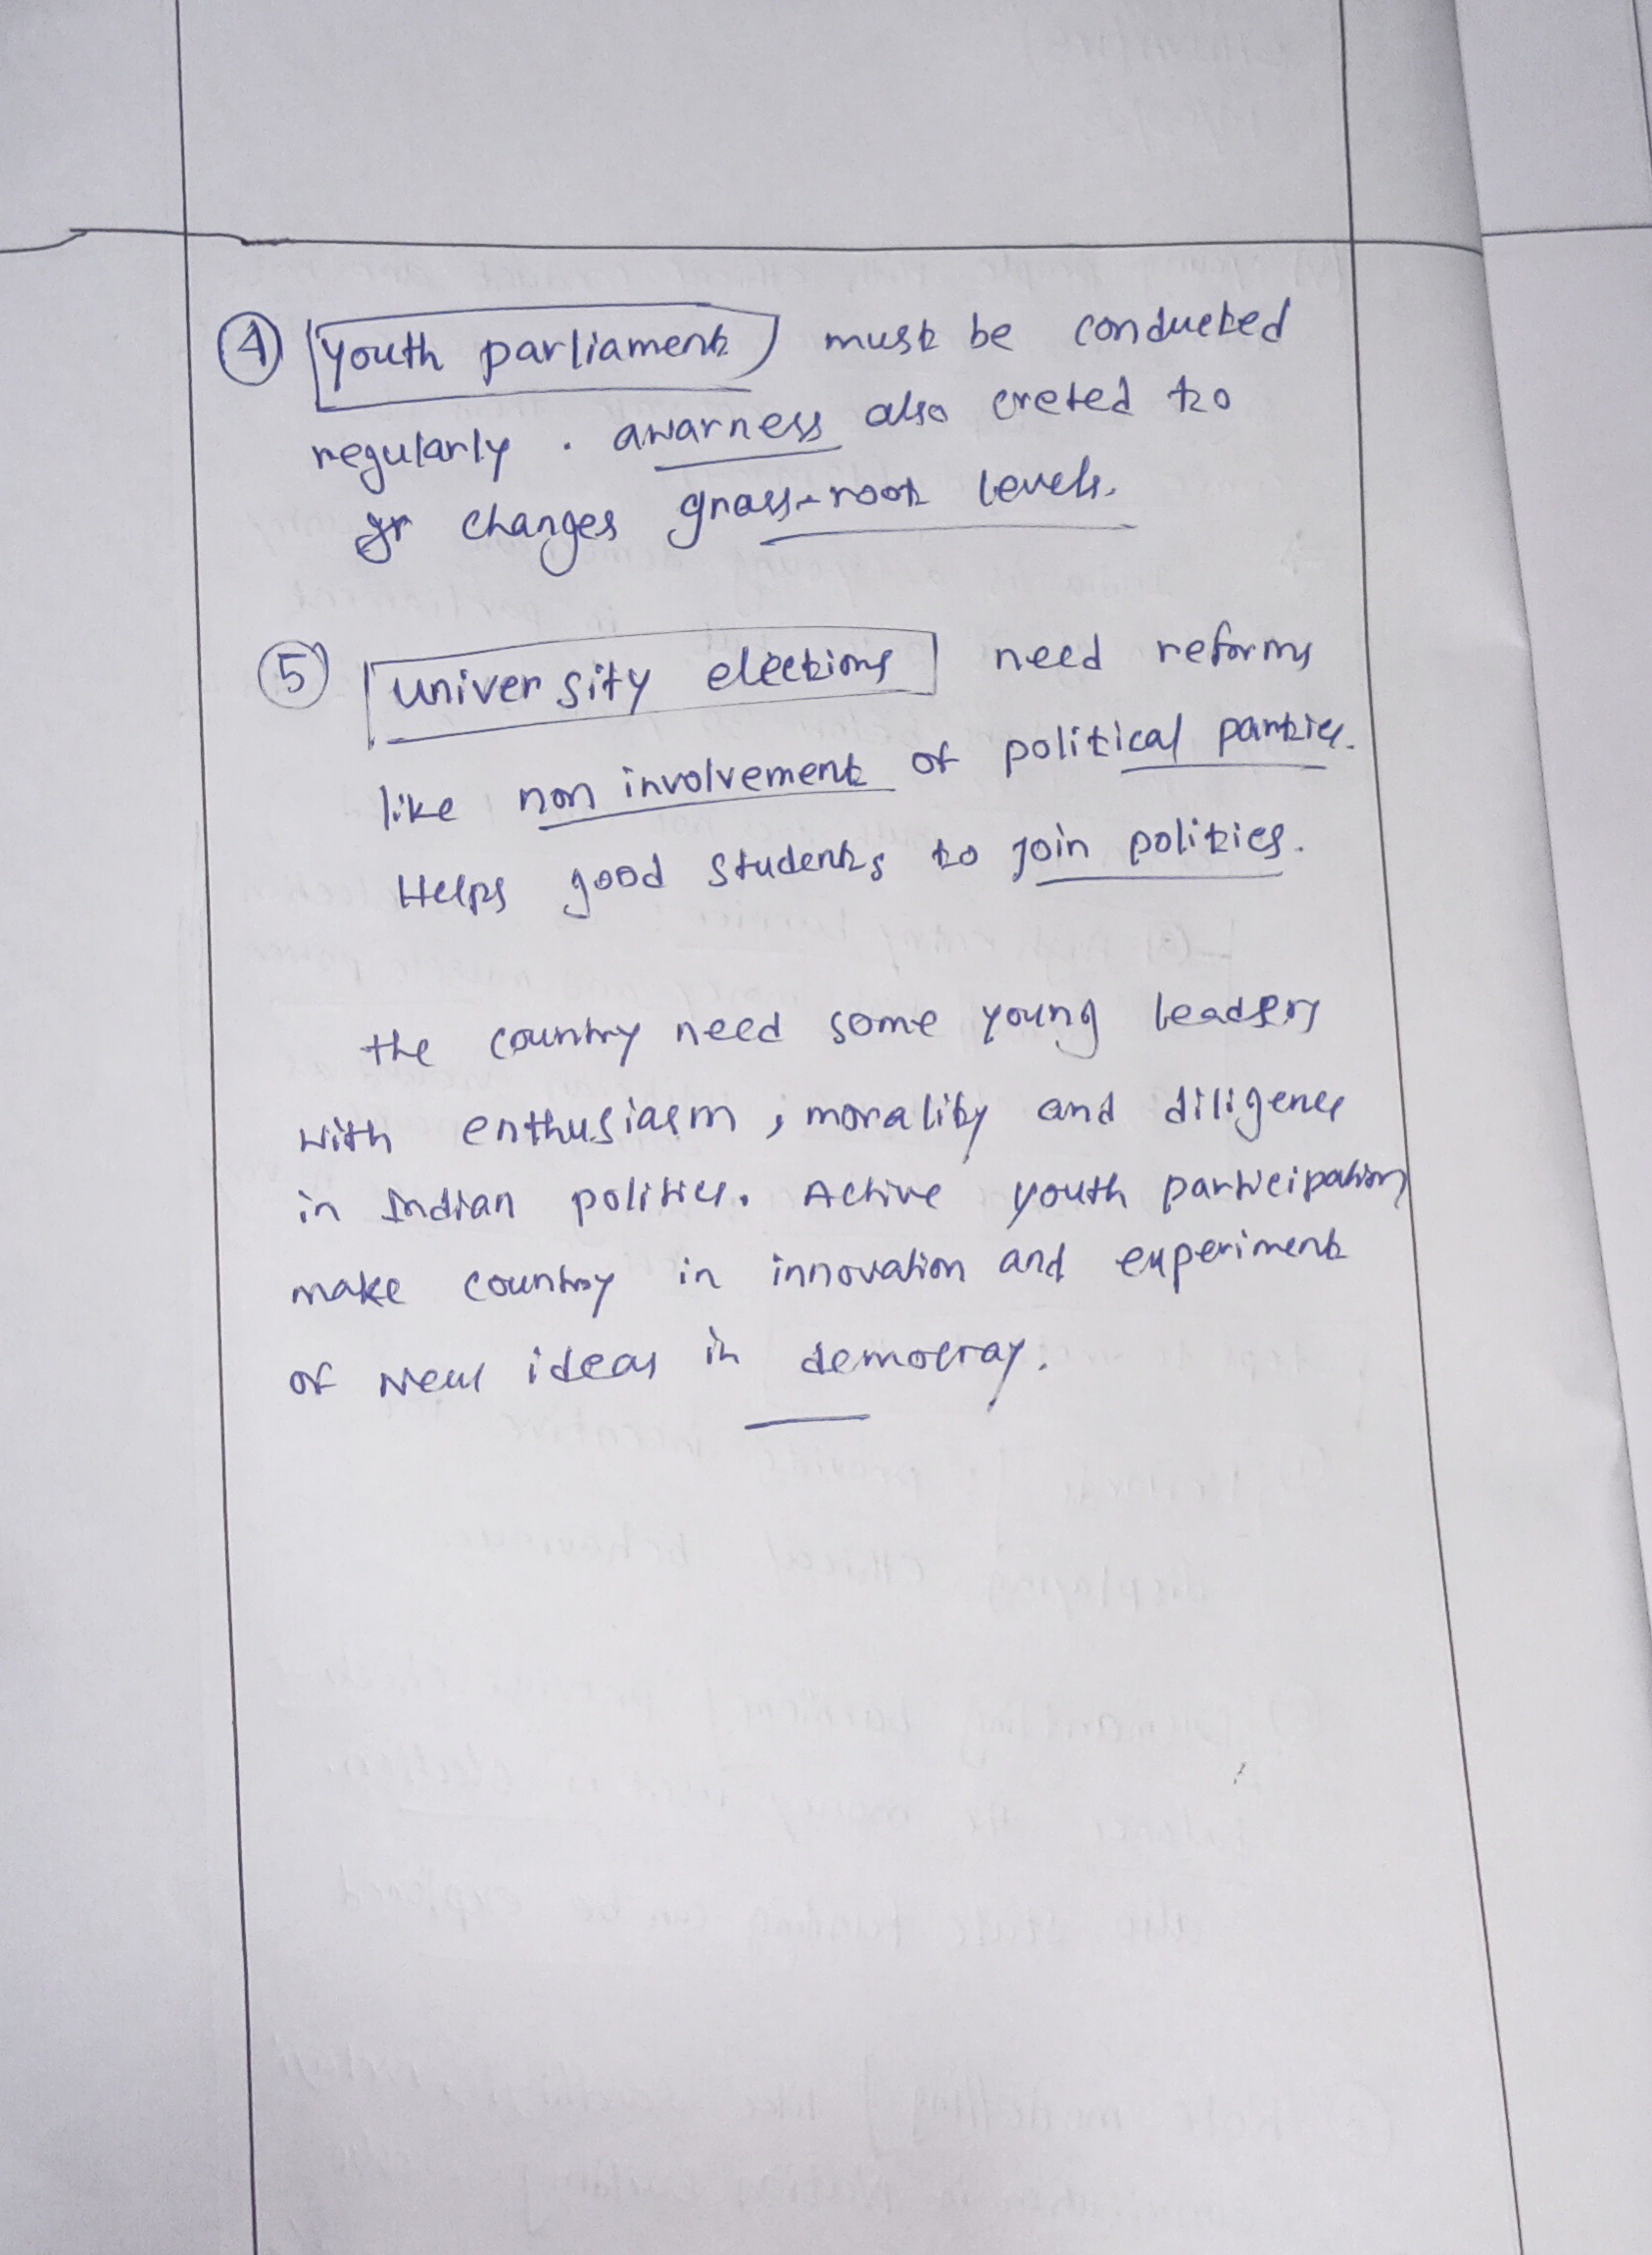 ④ youth parliament must be conducted
regularly . awarness also creted to
changes grass-root levels.
⑤ university elections need reforms
like non involvement of political parties.
Helps good students to join politics.
the country need some young leaders
with enthusiasm, morality and diligence
in Indian politics. Active youth participation
make country in innovation and experiment
of new ideas in democray.